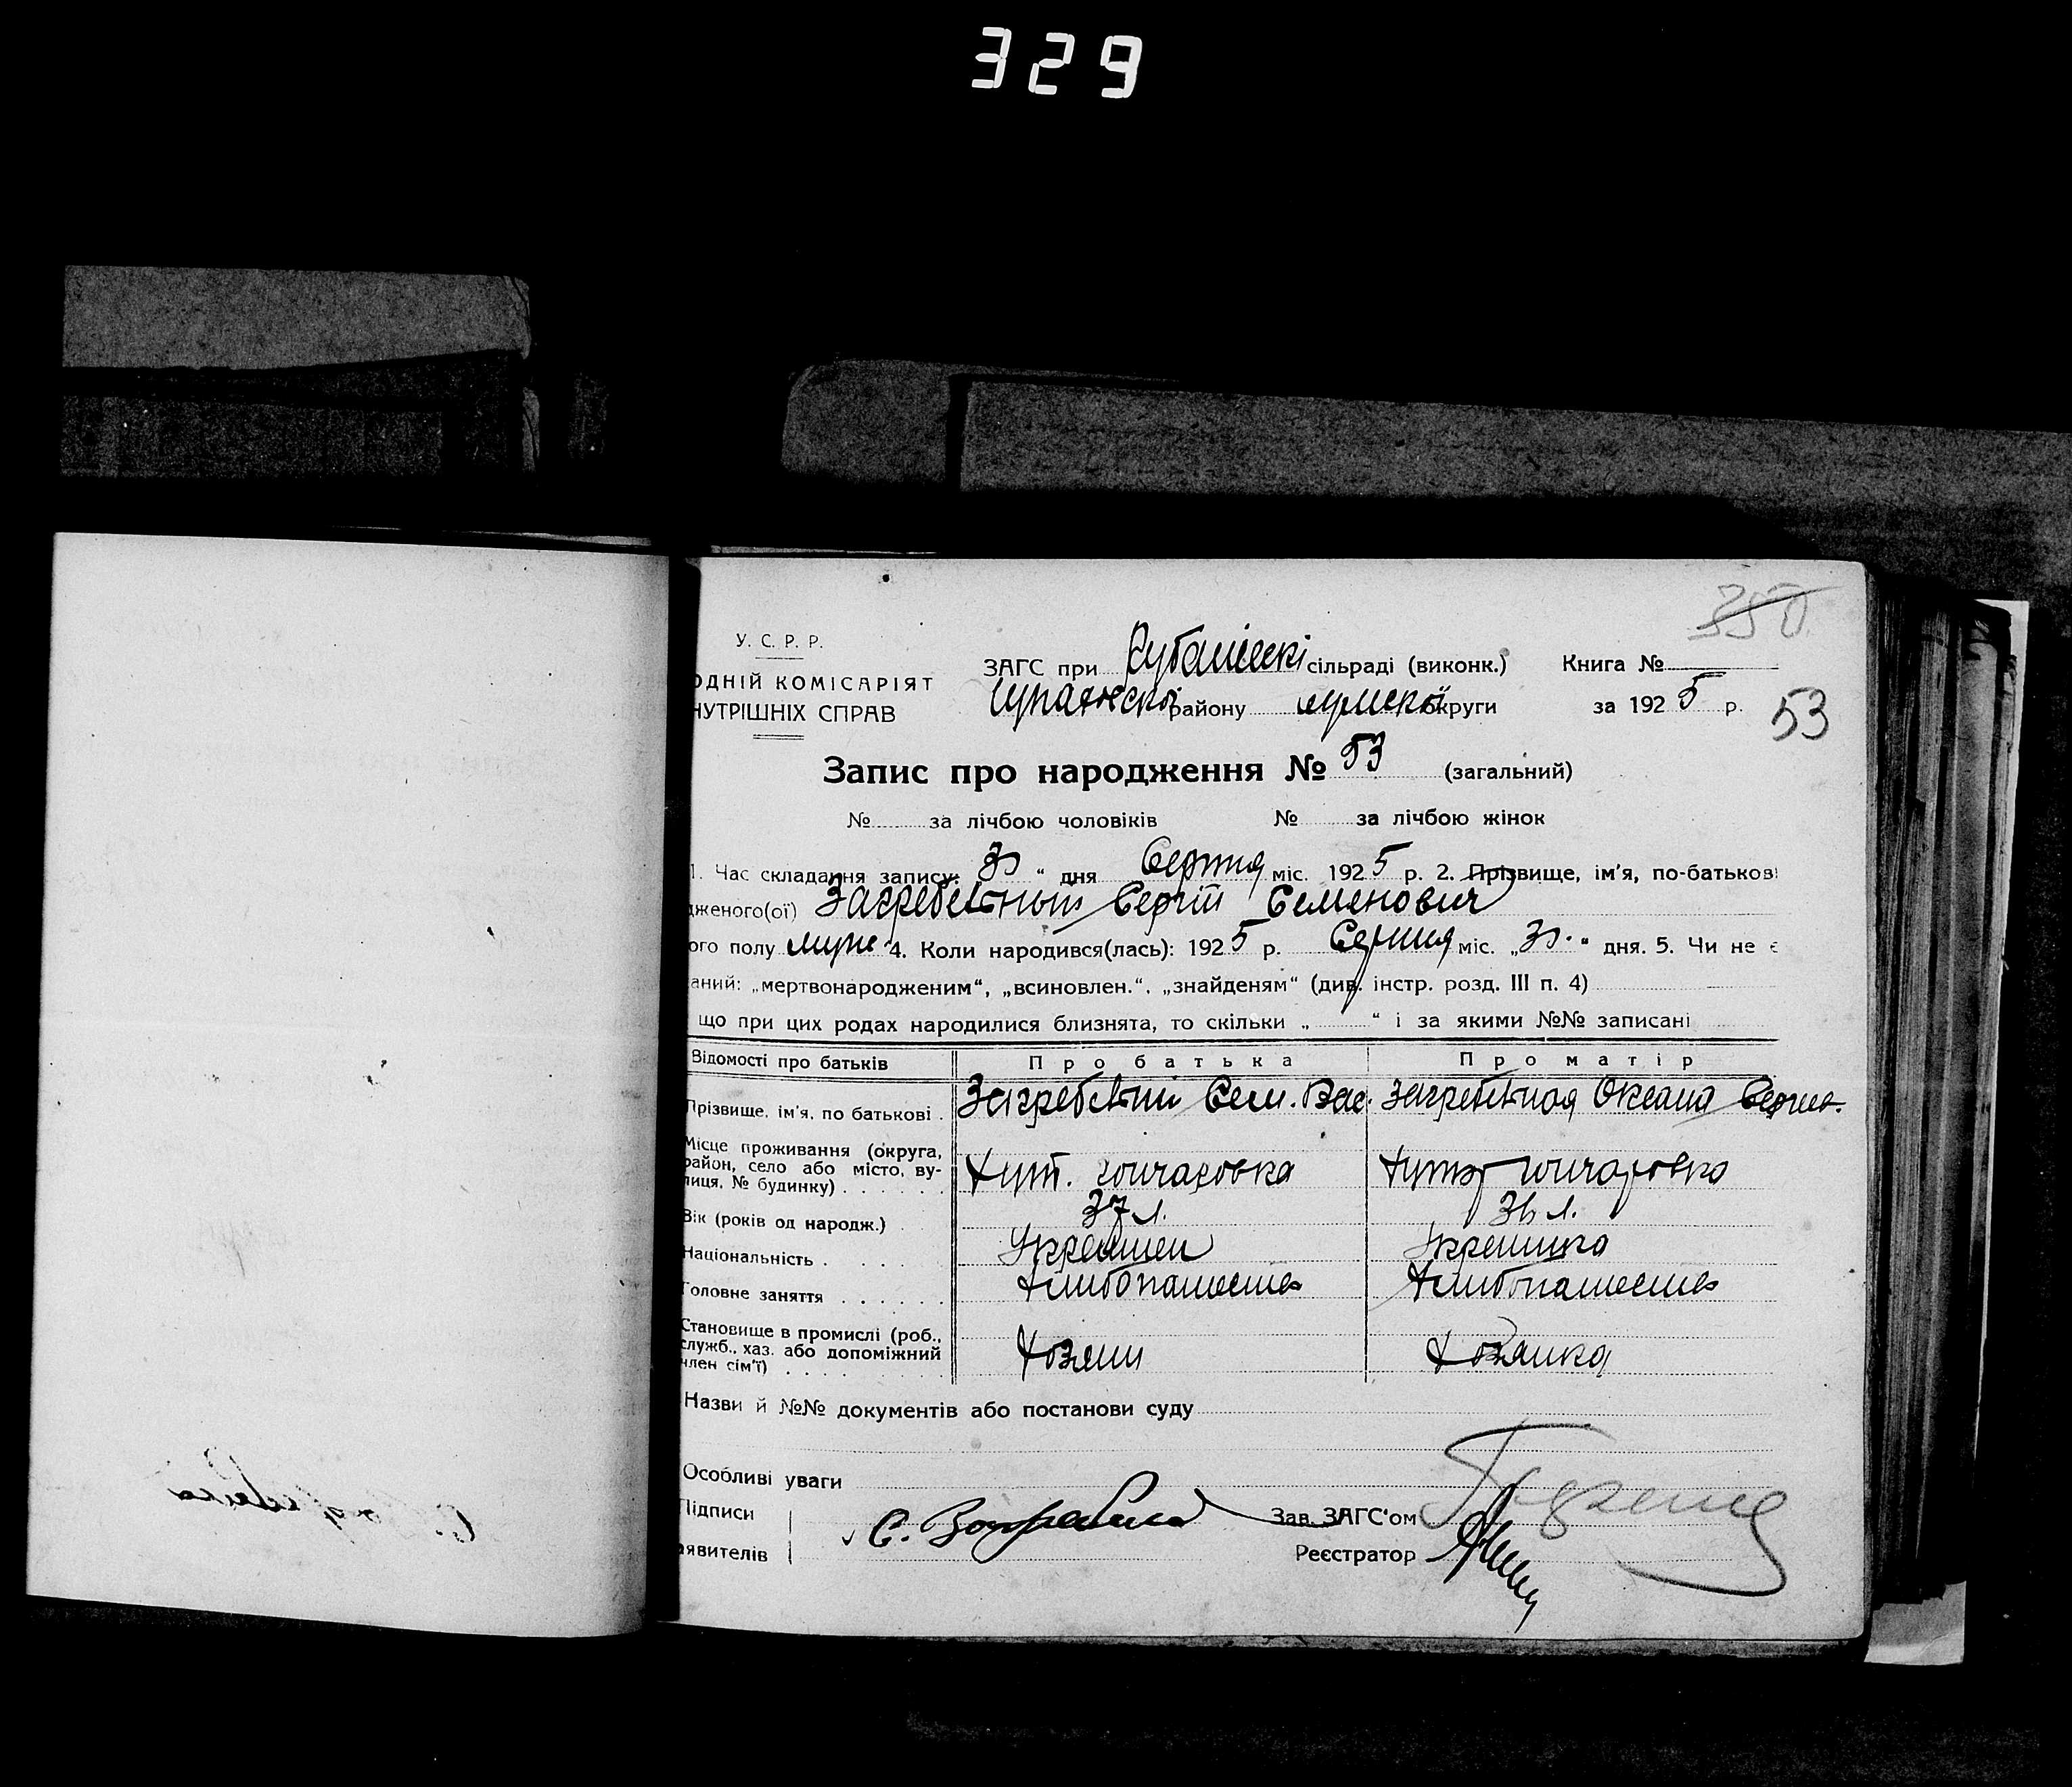 329
350
У. С. Р. Р.
ОДНІЙ КОМІСАРІЯТ
НУТРІШНІХ СПРАВ
ЗАГС при сільраді (виконк.) Книга №
району сумскої округи за 1925 р. 53
Запис про народження № 53 (загальний)
№ за лічбою чоловіків № за лічбою жінок
1. Час складання запису: 30 " дня Серпня міс. 1925 р. 2. Прізвище, ім'я, по-батькові
дженого(ої) Загребетный Сергій Семенович
ого полу муж 4. Коли народився(лась): 1925 р. Серпня міс. „30." дня. 5. Чи не є
аний: „мертвонародженим", „всиновлен.", „знайденям" (див. інстр. розд. III п. 4)
що при цих родах народилися близнята, то скільки „ " і за якими №№ записані
Відомості про батьків Про батька Про матір
Прізвище, ім'я, по батькові . Сем. Вас. Загребетная Оксана
Місце проживання (округа,
район, село або місто, ву-
лиця, № будинку) . . . . . . Хут. гончаровка Хутор гончаровка
Вік (років од народж.) . 37 л. 36 л.
Національність . . . . Українец Українка
Головне заняття . . . . . . Хлибопашество Хлибопашество
Становище в промислі (роб.,
служб., хаз. або допоміжний
член сім'ї) . . . . . . . . Хозяин Хозяйка
Назви й №№ документів або постанови суду
Особливі уваги
Підписи С. Зав. ЗАГС'ом
аявителів Реєстратор